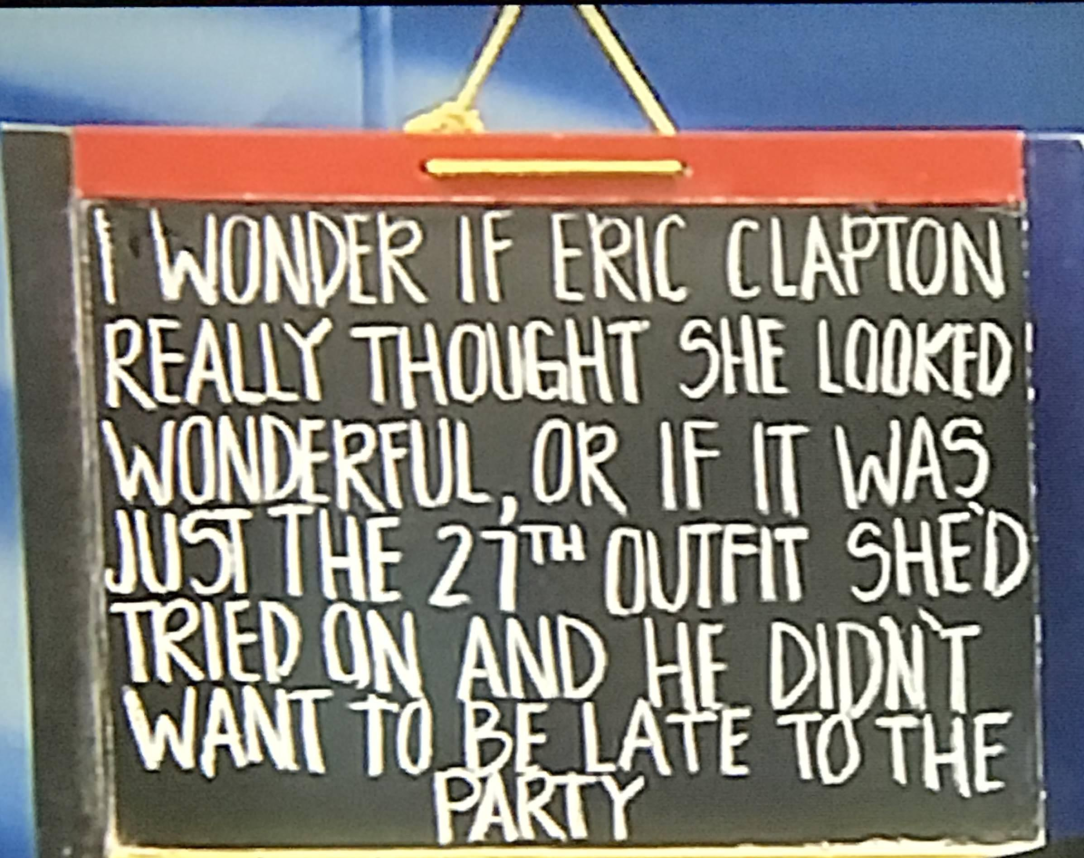 I WONDER IF ERIC CLAPTON
REALLY THOUGHT SHE LOOKED
WONDERFUL, OR IF IT WAS
JUST THE 27TH OUTFIT SHE'D
TRIED ON AND HE DIDN'T
WANT TO BE LATE TO THE
PARTY